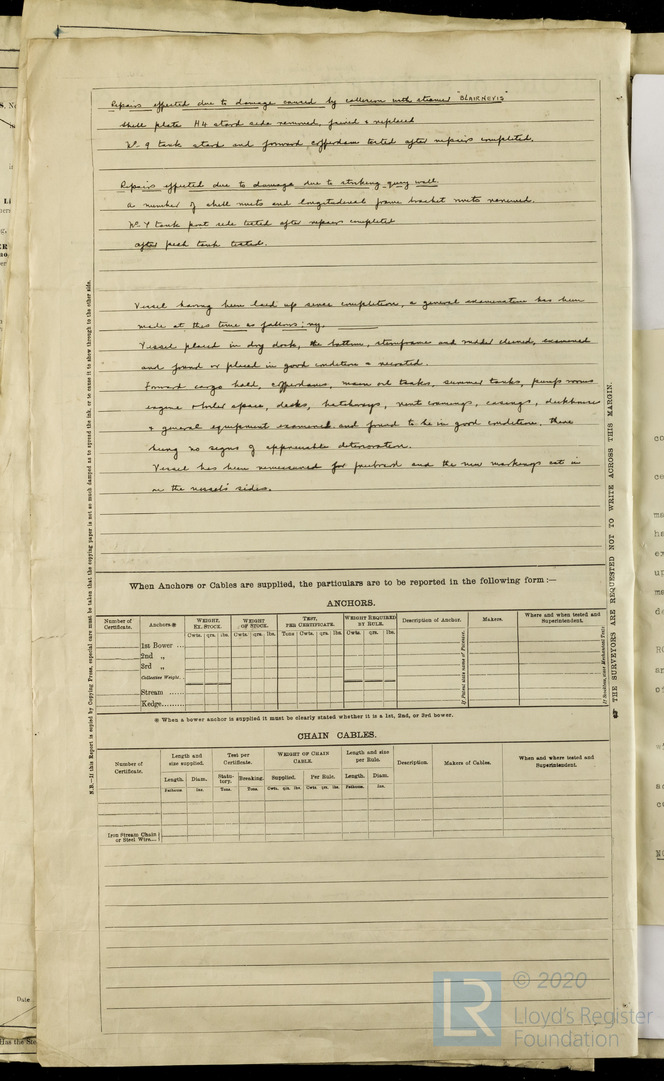 Repairs effected due to damage caused by collision with steamer "BLAIRNEVIS"
Shell plate H4 starbd side removed, faired & replaced
No 9 tank starbd and forward cofferdam tested after repairs completed.
Repairs effected due to damage due to striking quay wall.
A number of shell rivets and longitudinal frame bracket rivets renewed.
No 7 tank port side tested after repairs completed
after peak tank tested.
Vessel having been laid up since completion, a general examination has been
made at this time as follows: viz.
Vessel placed in dry dock, the bottom, sternframe and rudder cleaned, examined
and found or placed in good condition & recoated.
Forward cargo hold, cofferdams, main oil tanks, summer tanks, pump rooms
engine & boiler space, decks, hatchways, vent coamings, casings, deckhouses
& general equipment examined and found to be in good condition, there
being no signs of appreciable deterioration.
Vessel has been remeasured for freeboard and the new markings cut in
on the vessel's sides.
When Anchors or Cables are supplied, the particulars are to be reported in the following form :—
ANCHORS.
Number of Certificate. Anchors.* WEIGHT, EX. STOCK. WEIGHT OF STOCK. TEST, PER CERTIFICATE. WEIGHT REQUIRED BY RULE. Description of Anchor. Makers. Where and when tested and Superintendent.
Cwts. qrs. lbs. Cwts. qrs. lbs. Tons Cwts. qrs. lbs. Cwts. qrs. lbs.
1st Bower ...
2nd „
3rd „
Collective Weight.
Stream ......
Kedge........
If Patent state name of Patentee.
* When a bower anchor is supplied it must be clearly stated whether it is a 1st, 2nd, or 3rd bower.
CHAIN CABLES.
Number of Certificate. Length and size supplied. Test per Certificate. WEIGHT OF CHAIN CABLE. Length and size per Rule. Description. Makers of Cables. When and where tested and Superintendent.
Length. Diam. Statutory. Breaking. Supplied. Per Rule. Length. Diam.
Fathoms. Ins. Tons. Tons. Cwts. qrs. lbs. Cwts. qrs. lbs. Fathoms. Ins.
Iron Stream Chain or Steel Wire...
N.B.—If this Report is copied by Copying Press, especial care must be taken that the copying paper is not so much damped as to spread the ink, or to cause it to show through to the other side.
THE SURVEYORS ARE REQUESTED NOT TO WRITE ACROSS THIS MARGIN.
Date
LR
© 2020
Lloyd's Register
Foundation